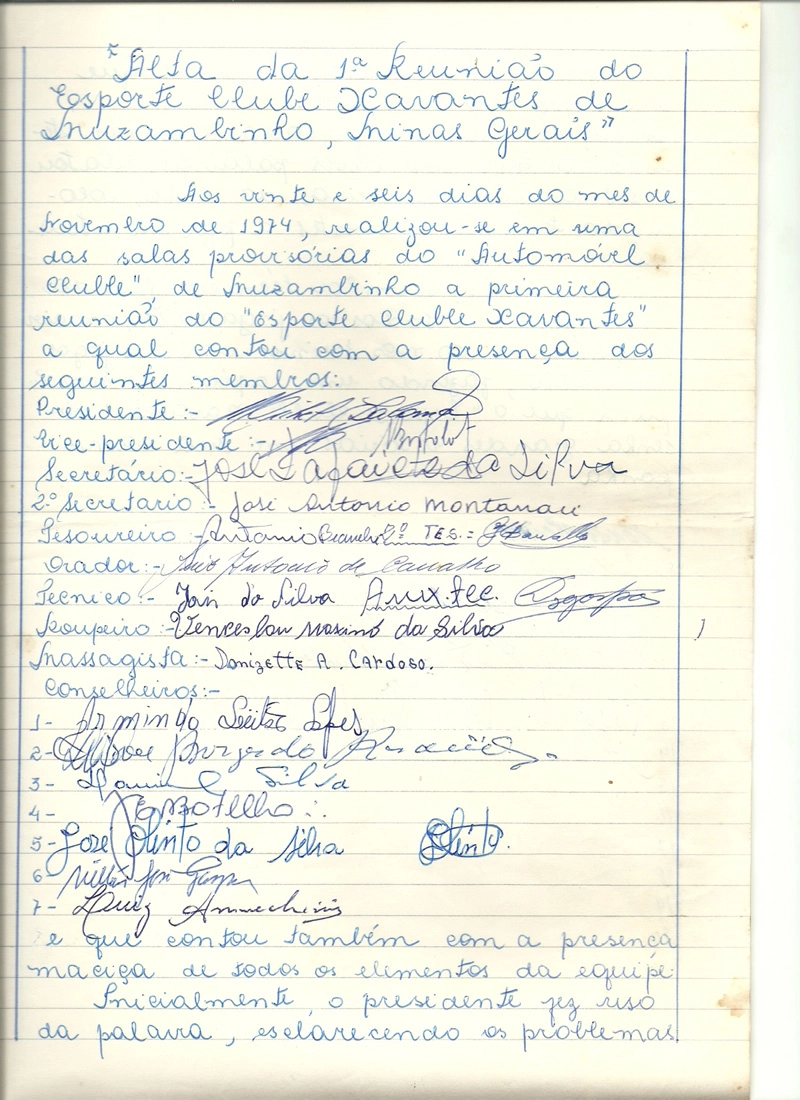 "Ata da 1ª Reunião do
Esporte Clube Xavantes de
Muzambinho, Minas Gerais"
Aos vinte e seis dias do mes de
Novembro de 1974, realizou-se em uma
das salas provisórias do "Automóvel
Clube", de Muzambinho a primeira
reunião do "Esporte Clube Xavantes"
a qual contou com a presença dos
seguintes membros:
Presidente:-
Vice-presidente:-
Secretário:- José Lafaiete da Silva
2º Secretario:- José Antonio Montanari
Tesoureiro:- Antonio 2º TES.:=
Orador:- Luis Antonio de Carvalho
Técnico:- da Silva Aux.tec.
Roupeiro:- Venceslau Maximo da Silva
Massagista:- Donizette A. Cardoso.
Conselheiros:-
1- Armindo Lopes
2-
3- Silva
4- Botelho
5- José Olinto da Silva Olinto.
6-
7- Luiz
e que contou também com a presença
maciça de todos os elementos da equipe.
Inicialmente, o presidente fez uso
da palavra, esclarecendo os problemas